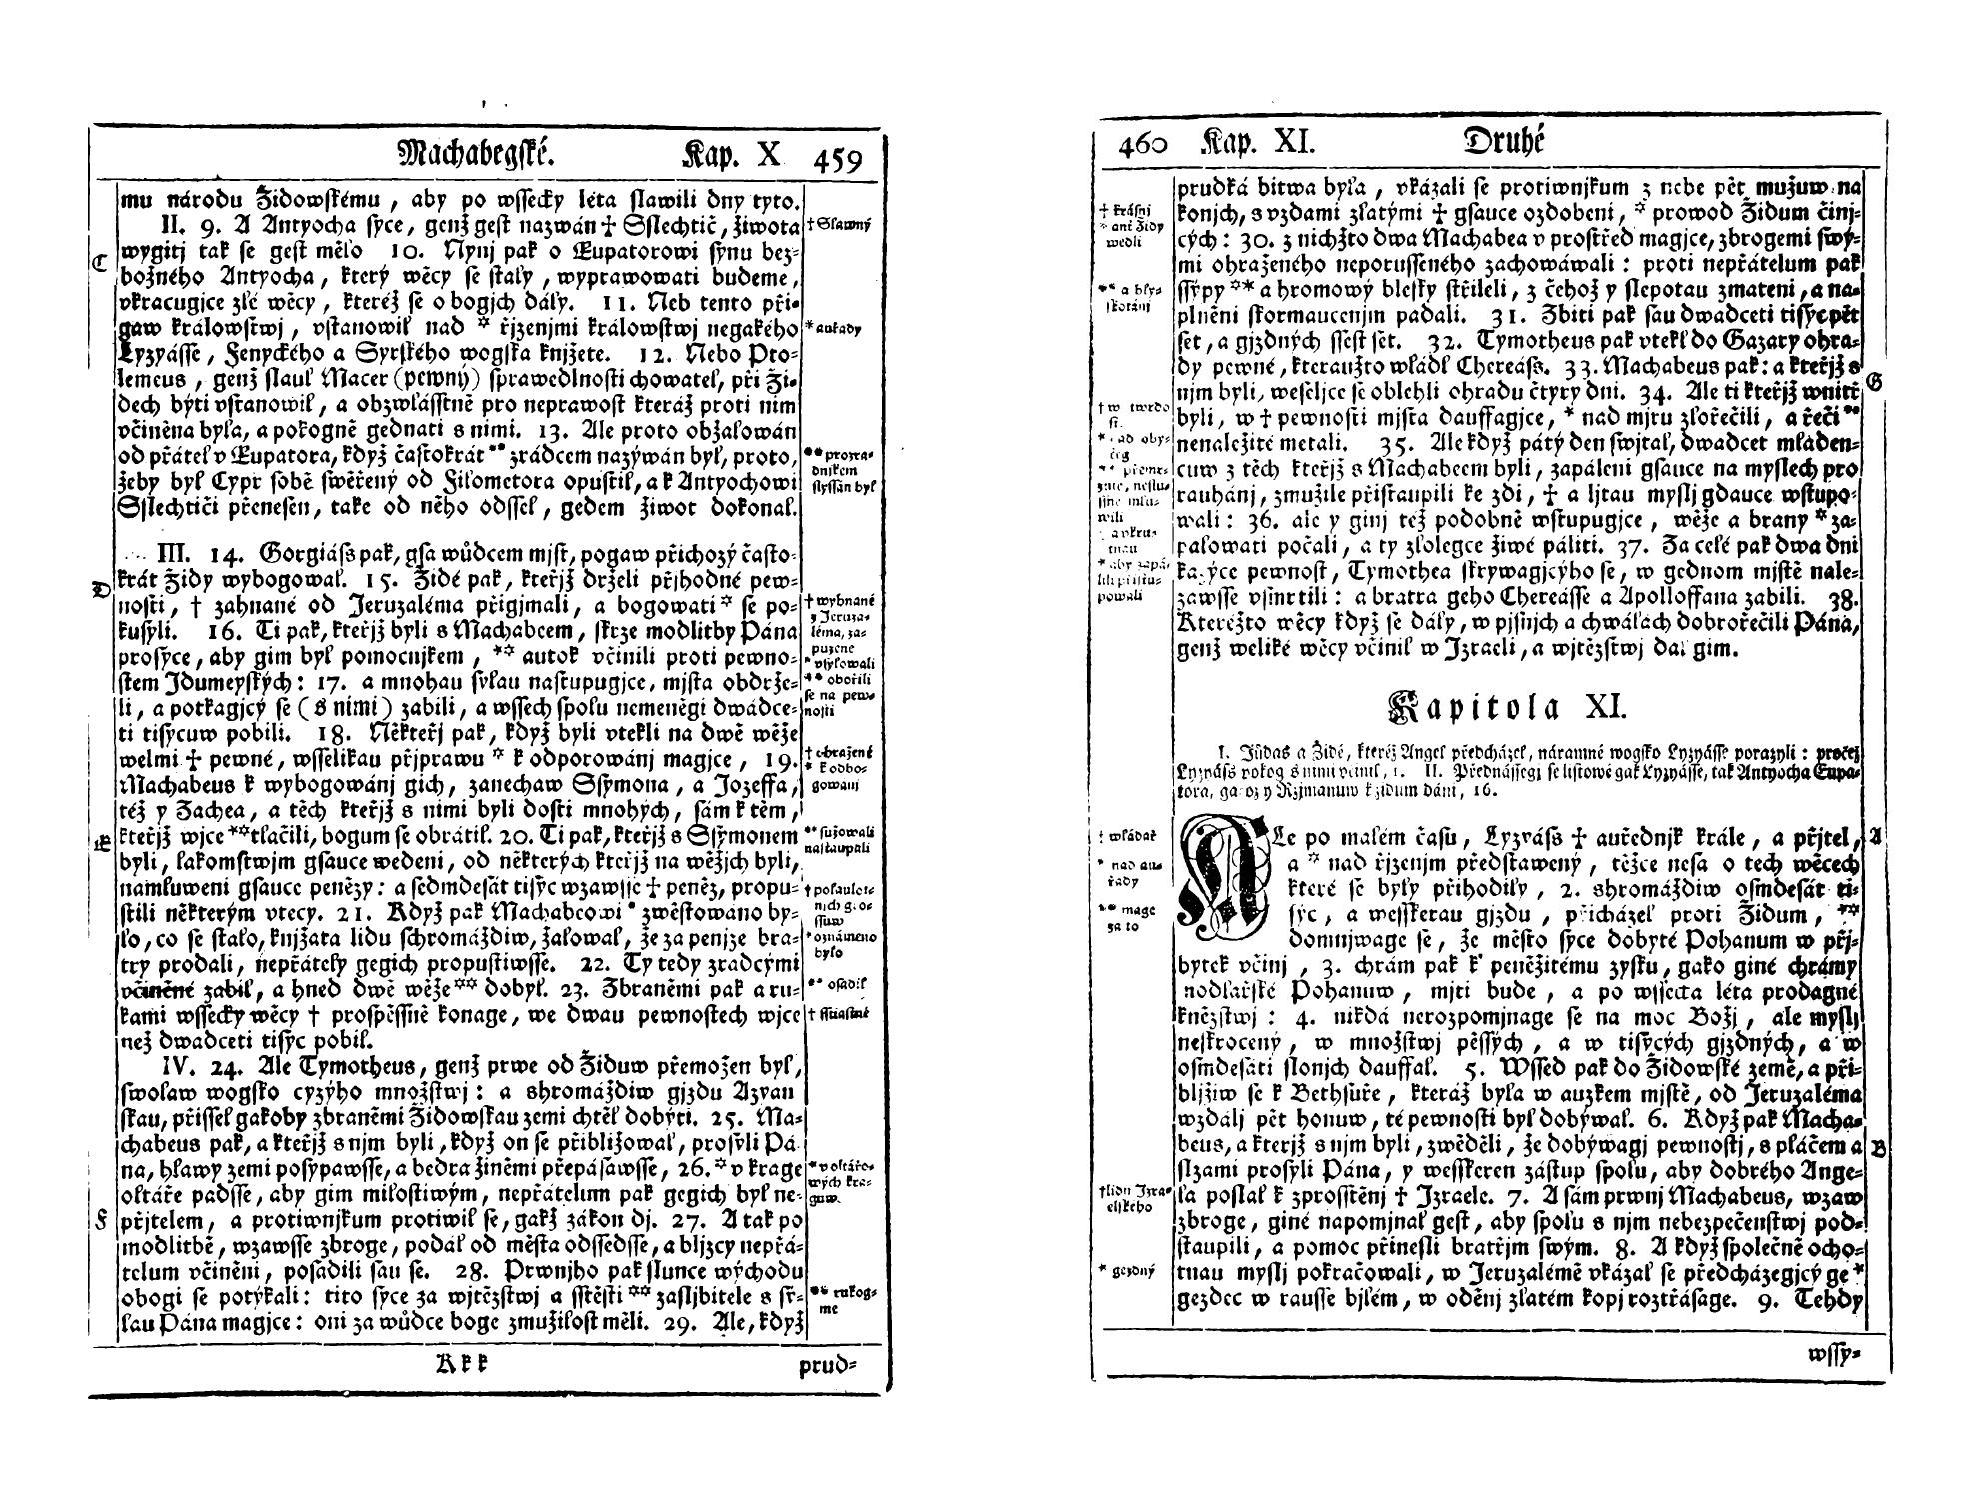 Machabegſké. Kap. X 459
mu národu Židowſkému, aby po wſſecky léta ſlawili dny tyto.
II. 9. A Antyocha ſyce, genž geſt nazwán † Sſlechtič, života
wygitj tak ſe geſt mělo 10. Nynj pak o Eupatorowi ſynu bez-
božného Antyocha, který wěcy ſe ſtaly, wyprawowati budeme,
vkracugjce zlé wěcy, kteréž ſe o bogjch dály. 11. Neb tento při-
gaw králowſtwj, vſtanowil nad * řjzenjmi králowſtwj negakého
Lyzyáſſe, Fenyckého a Syrſkého wogſka knjžete. 12. Nebo Pto-
lemeus, genž ſlaul Macer (pewný) ſprawedlnoſti chowatel, při Ži-
dech býti vſtanowil, a obzwláſſtně pro neprawoſt kteráž proti nim
včiněna byla, a pokogně gednati s nimi. 13. Ale proto obžalowán
od přátel v Eupatora, když čaſtokrát ** zrádcem nazýwán byl, proto,
žeby byl Cypr ſobě ſwěřený od Filometora opuſtil, a k Antyochowi
Sſlechtiči přeneſen, také od něho odſſel, gedem život dokonal.
III. 14. Gorgiáſs pak, gſa wůdcem mjſt, pogaw přichozý čaſto-
krát Židy wybogowal. 15. Židé pak, kteřjž drželi přjhodné pew-
noſti, † zahnané od Jeruzaléma přigjmali, a bogowati * ſe po-
kuſyli. 16. Ti pak, kteřjž byli s Machabeem, ſkrze modlitby Pána
proſyce, aby gim byl pomocnjkem, ** autok včinili proti pewno-
ſtem Jdumeyſkých: 17. a mnohau ſylau naſtupugjce, mjſta obdrže-
li, a potkagjcý ſe (s nimi) zabili, a wſſech ſpolu nemeněgi dwádce-
ti tiſycuw pobili. 18. Někteřj pak, když byli vtekli na dwě wěže
welmi † pewné, wſſelikau přjprawu * k odporowánj magjce, 19.
Machabeus k wybogowánj gich, zanechaw Sſymona, a Jozeffa,
též y Zachea, a těch kteřjž s nimi byli doſti mnohých, ſám k těm,
kteřjž wjce ** tlačili, bogum ſe obrátil. 20. Ti pak, kteřjž s Sſymonem
byli, lakomſtwjm gſauce wedeni, od některých kteřjž na wěžjch byli,
namluweni gſauce penězy: a ſedmdeſát tiſyc wzawſſe † peněz, propu-
ſtili některým vtecy. 21. Když pak Machabeowi * zwěſtowáno by-
lo, co ſe ſtalo, knjžata lidu ſchromáždiw, žalowal, že za penjze bra-
try prodali, nepřátely gegich propuſtiwſſe. 22. Ty tedy zradcými
včiněné zabil, a hned dwě wěže ** dobyl. 23. Zbraněmi pak a ru-
kami wſſecky wěcy † proſpěſſně konage, we dwau pewnoſtech wjce
než dwadceti tiſyc pobil.
IV. 24. Ale Tymotheus, genž prwe od Židuw přemožen byl,
ſwolaw wogſko cyzýho množſtwj: a shromáždiw gjzdu Azyan
ſkau, přiſſel gakoby zbraněmi Židowſkau zemi chtěl dobýti. 25. Ma-
chabeus pak, a kteřjž s njm byli, když on ſe přibližowal, proſyli Pá-
na, hlawy zemi poſypawſſe, a bedra žiněmi přepáſawſſe, 26. * v krage
oltáře padſſe, aby gim miloſtiwým, nepřátelum pak gegich byl ne-
přjtelem, a protiwnjkum protiwil ſe, gakž zákon dj. 27. A tak po
modlitbě, wzawſſe zbroge, podál od města odſſedſſe, a bljzcy nepřá-
telum včiněni, poſadili ſau ſe. 28. Prwnjho pak ſlunce wýchodu
obogi ſe potýkali: tito ſyce za wjtězſtwj a ſſtěſti ** zaſljbitele s ſy-
lau Pána magjce: oni za wůdce boge zmužiloſt měli. 29. Ale, když
Kkk prud-
C
D
E
F
† Slawný
* auřady
** prozra-
dnikem
ſlyſſán byl
† wyhnané
z Jeruza-
léma, za-
puzené
* vſylowali
** obořili
ſe na pew-
noſti
† obražené
* k odbo-
gowanj
** ſužowali
naſtaupali
* oznámeno
bylo
** oſadil
† ſſťaſtně
* v oltářo-
wých kra-
guw.
** rukog-
me
460 Kap. XI. Druhé
prudká bitwa byla, vkázali ſe protiwnjkum z nebe pět mužuw na
konjch, s vzdami zlatými † gſauce ozdobeni, * prowod Židum činj-
cých: 30. z nichžto dwa Machabea v proſtřed magjce, zbrogemi ſwý-
mi obraženého neporuſſeného zachowáwali: proti nepřátelum pak
ſſýpy ** a hromowý bleſky ſtřileli, z čehož y ſlepotau zmateni, a na-
plněni ſkormaucenjm padali. 31. Zbiti pak ſau dwadceti tiſyc pět
ſet, a gjzdných ſſeſt ſet. 32. Tymotheus pak vtekl do Gazary ohra-
dy pewné, kteraužto wládl Chereáſs. 33. Machabeus pak: a kteřjž s
njm byli, weſeljce ſe oblehli ohradu čtyry dni. 34. Ale ti kteřjž wnitř
byli, w † pewnoſti mjſta dauffagjce, * nad mjru zlořečili, a řeči **
nenaležité metali. 35. Ale když pátý den ſwjtal, dwadcet mláden-
cuw z těch kteřjž s Machabeem byli, zapáleni gſauce na myſlech pro
rauhánj, zmužile přiſtaupili ke zdi, † a ljtau myſlj gdauce wſtupo-
wali: 36. ale y ginj též podobně wſtupugjce, wěže a brany * za-
palowati počali, a ty zlolegce žiwé páliti. 37. Za celé pak dwa dni
kazýce pewnoſt, Tymothea ſkrywagjcýho ſe, w gednom mjſtě nale-
zawſſe vſmrtili: a bratra geho Chereáſſe a Apolloffana zabili. 38.
Kteréžto wěcy když ſe dály, w pjſnjch a chwálách dobrořečili Pána,
genž weliké wěcy včinil w Izraeli, a wjtězſtwj dal gim.
Kapitola XI.
I. Júdas a Židé, kteréž Angel předcházel, náramné wogſko Lyzyáſſe porazyli: pročež
Lyzyáſs pokog s nimi včinil, 1. II. Přednáſſegj ſe liſtowé gak Lyzyáſſe, tak Antyocha Eupa-
tora, gakož y Ržjmanuw k Židum dáni, 16.
ALe po malém čaſu, Lyzyáſs † auředlnjk krále, a přjtel,
a * nad řjzenjm předſtawený, těžce neſa o tech wěcech
které ſe byly přihodily, 2. shromáždiw oſmdeſát ti-
ſyc, a weſſkerau gjzdu, přicházel proti Židum, **
domnjwage ſe, že město ſyce dobyté Pohanum w přj-
bytek včinj, 3. chrám pak k penězitému zyſku, gako giné chrámy
modlářſké Pohanuw, mjti bude, a po wſſecta léta prodagné
kněžſtwj: 4. nikdá nerozpomjnage ſe na moc Božj, ale myſlj
neſkrocený, w množſtwj pěſſých, a w tiſycých gjzdných, a w
oſmdeſáti ſlonjch dauffal. 5. Wſſed pak do Židowſké země, a při-
bljžiw ſe k Bethſuře, kteráž byla w auzkem mjſtě, od Jeruzaléma
wzdálj pět honuw, té pewnoſti byl dobýwal. 6. Když pak Macha-
beus, a kterjž s njm byli, zwěděli, že dobýwagj pewnoſtj, s pláčem a
ſlzami proſyli Pána, y weſſkeren záſtup ſpolu, aby dobrého Ange-
la poſlal k zproſſtěnj † Izraele. 7. A ſám prwnj Machabeus, wzaw
zbroge, giné napomjnal geſt, aby ſpolu s njm nebezpečenſtwj pod-
ſtaupili, a pomoc přineſli bratřjm ſwým. 8. A když ſpolečně ocho-
tnau myſlj pokračowali, w Jeruzalémě vkázal ſe předcházegjcý ge *
gezdec w rauſſe bjlém, w oděnj zlatém kopj roztřáſage. 9. Tehdy
wſſy-
G
A
B
† kráſnj
* anť Židy
wedli
** a blý-
ſkotánj
† w twrdo
ſti
* nad oby-
čeg
* aby zapá-
lili přiſtu-
powali
† wládař
* nad au-
řady
** mage
za to
† lidu Izra-
elſkého
* gezdný